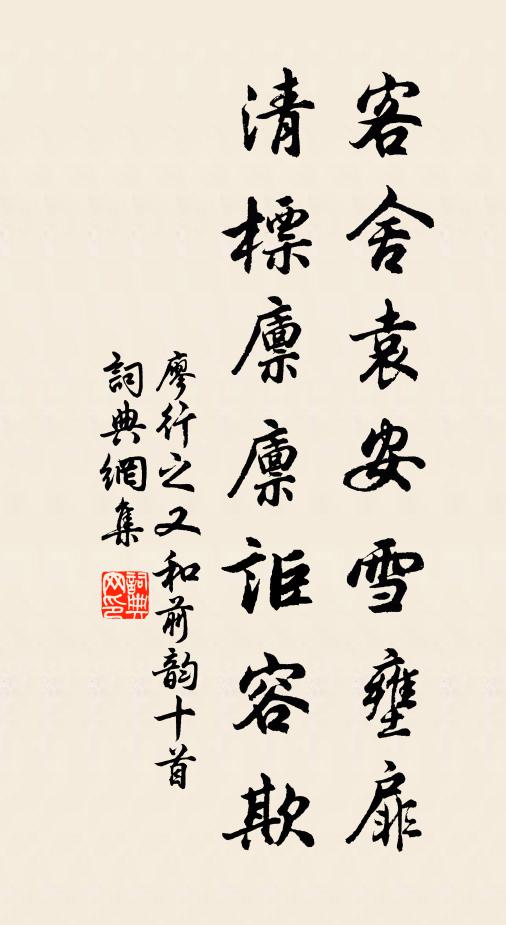 客舍袁安雪壅扉
清標廪廪詎容欺
廖行之又和前韵十首
詞典網集
詞典网印